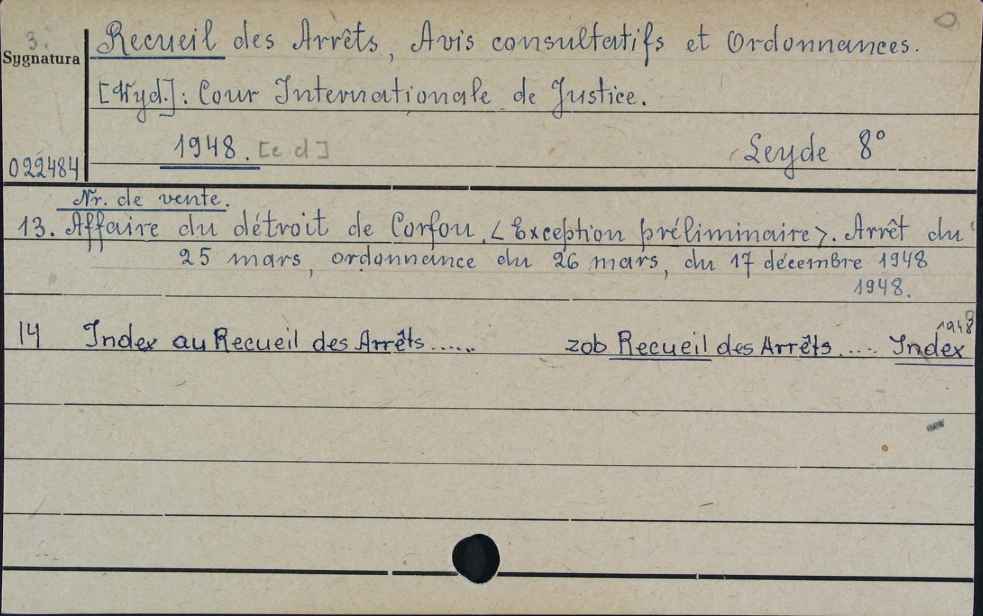 3.
Sygnatura
Recueil des Arrêts, Avis consultatifs et Ordonnances.
[Wyd.]: Cour Internationale de Justice.
1948. [c d]
Leyde 8°
022484
Nr. de vente.
13. Affaire du détroit de Corfou. <Exception préliminaire>. Arrêt du
25 mars, ordonnance du 26 mars, du 17 décembre 1948
1948.
14 Index au Recueil des Arrêts..... zob Recueil des Arrêts.... Index 1948